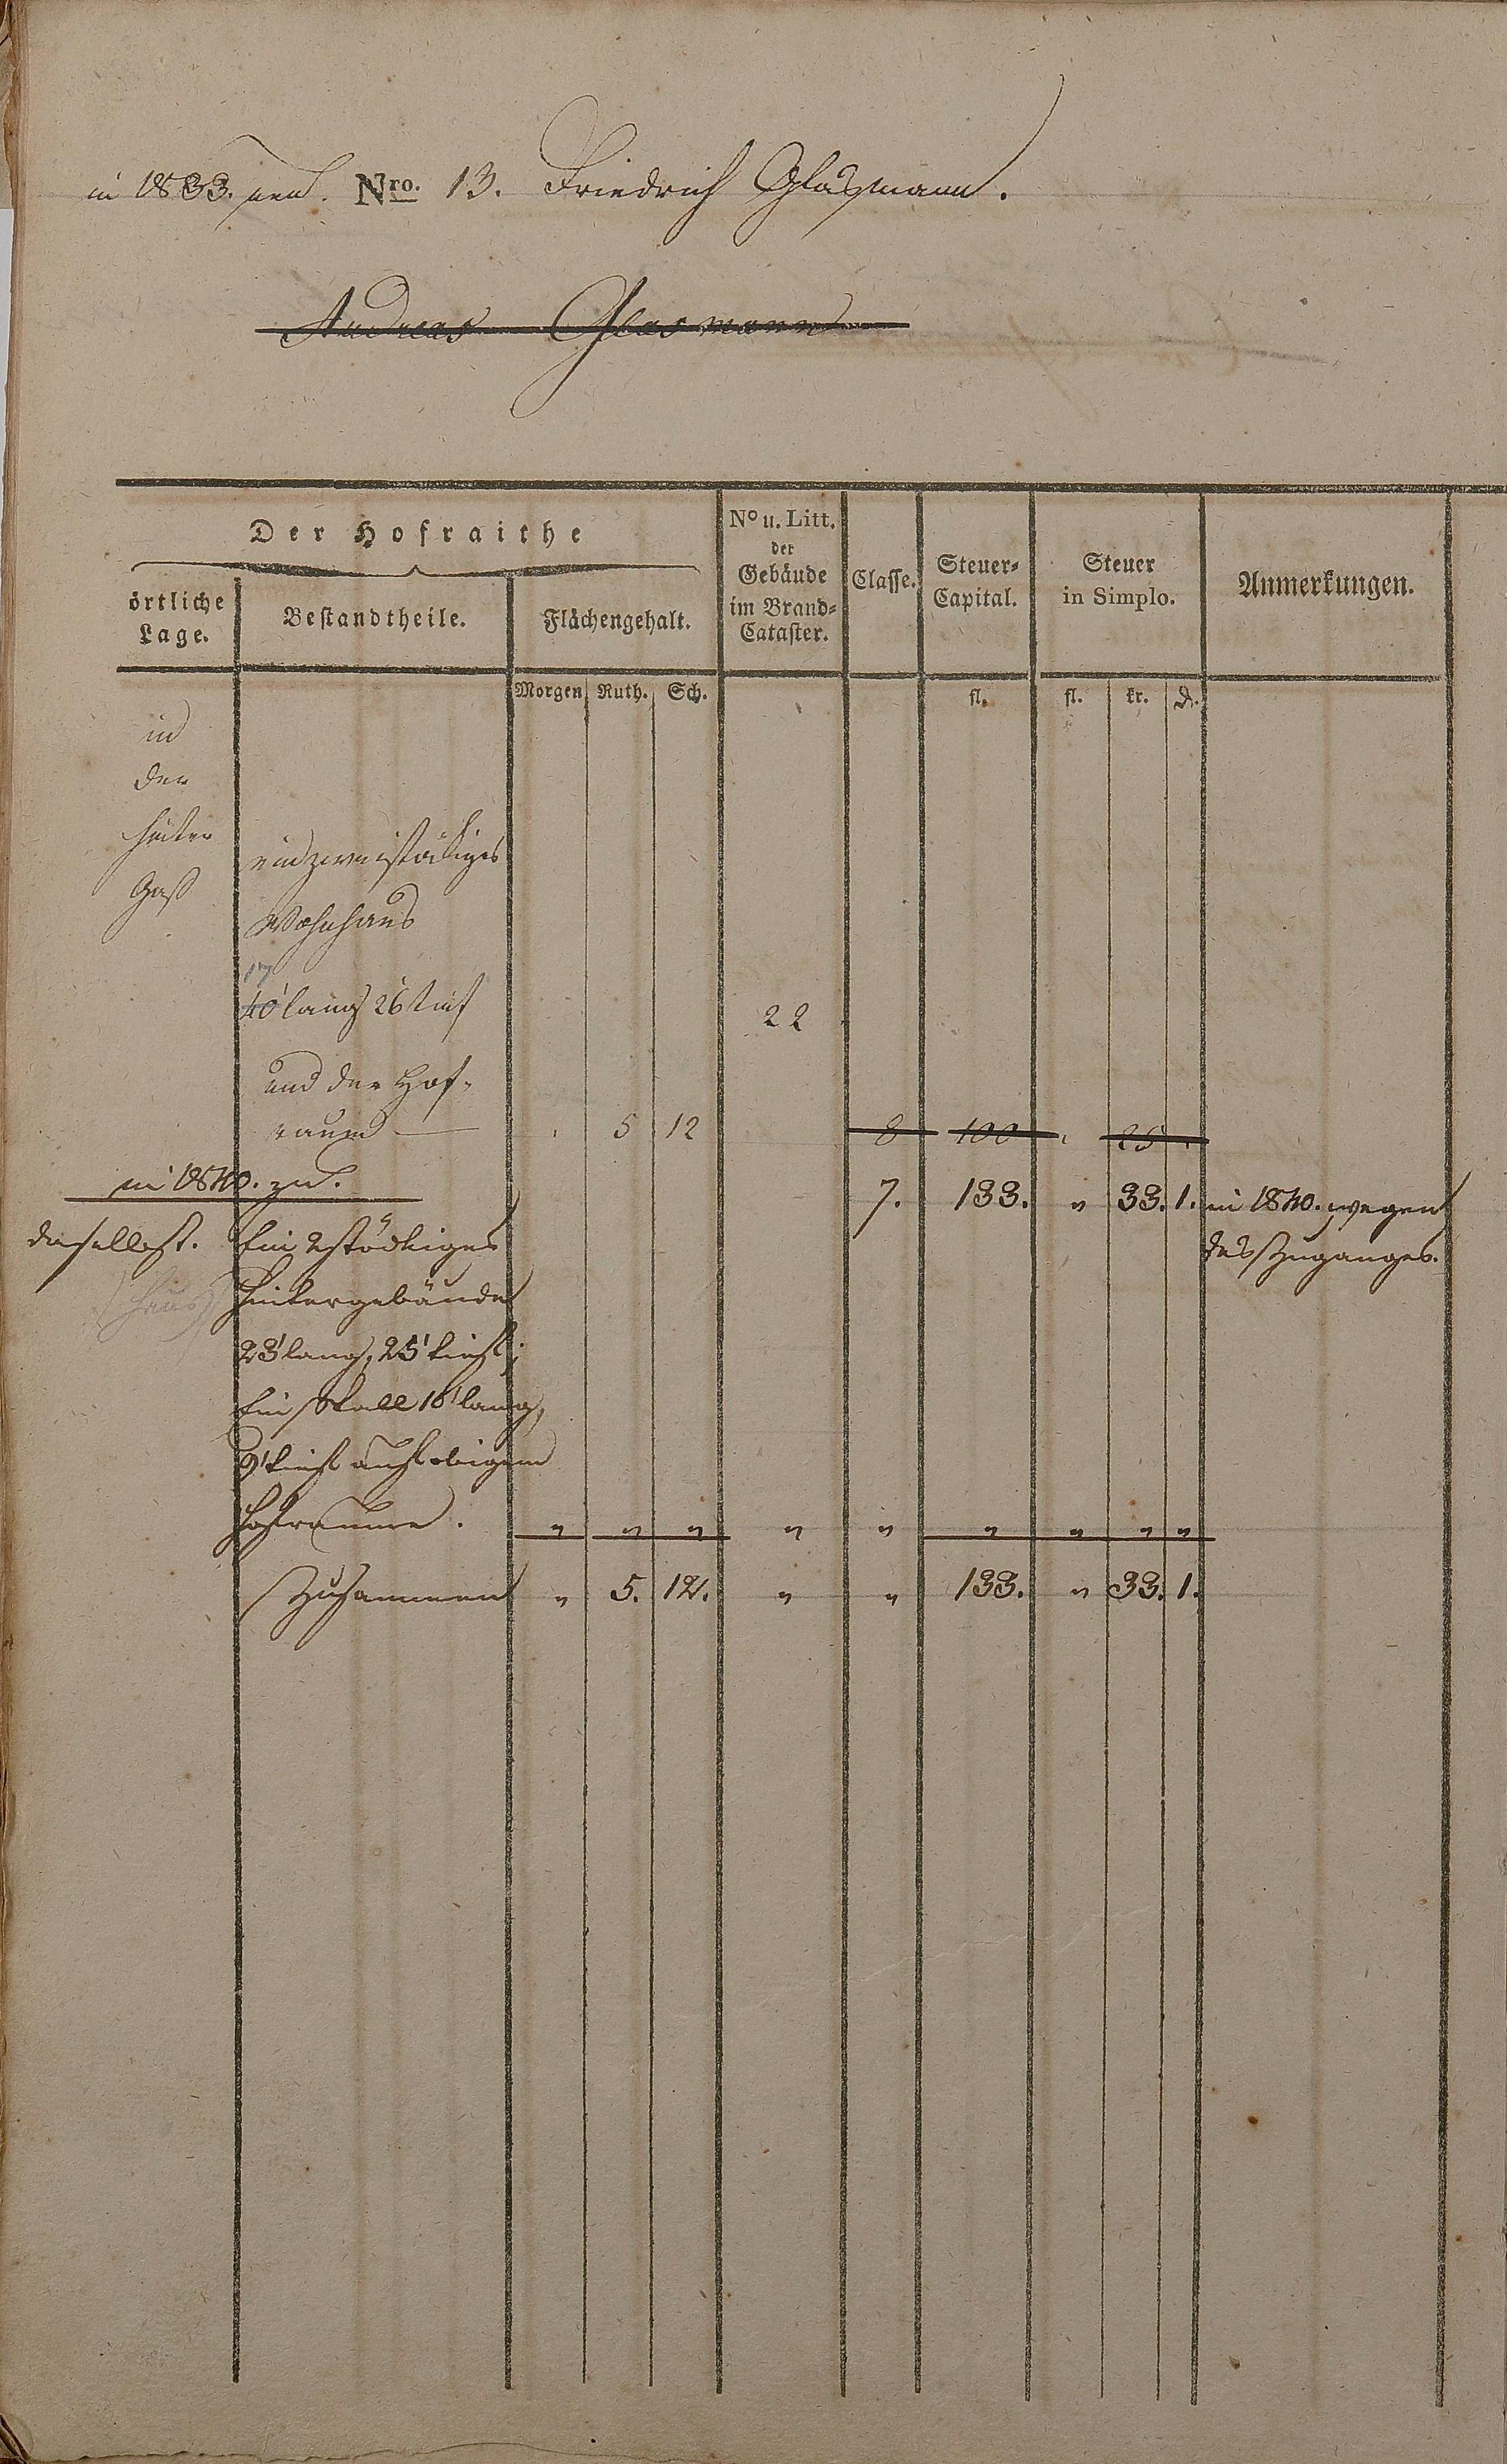 in 1833. neu. Nro. 13. Friedrich Glasmann.
Andreas Glasmann
Der Hofraithe
örtliche Lage.
Bestandtheile.
Flächengehalt.
No u. Litt. der Gebäude im Brand-Cataster.
Classe.
Steuer-Capital.
Steuer in Simplo.
Anmerkungen.
Morgen Ruth. Sch. fl. fl. kr. d.
in
der
hinter
Gaß
ein zweistöckiges
Wohnhaus
17
40' lang 26 tief 22
und der Hof-
raum 5 12 8 100 25
in 1840. zu.
7. 133. " 33. 1. in 1840. wegen
des Zuganges.
daselbst. Ein 2stöckiges
Haus Hintergebäude
23' lang, 25' tief;
Ein Stall 16' lang,
9' tief auf obigem
Hofraume. " " " " " " " " "
Zusammen " 5. 12. " " 133. " 33. 1.